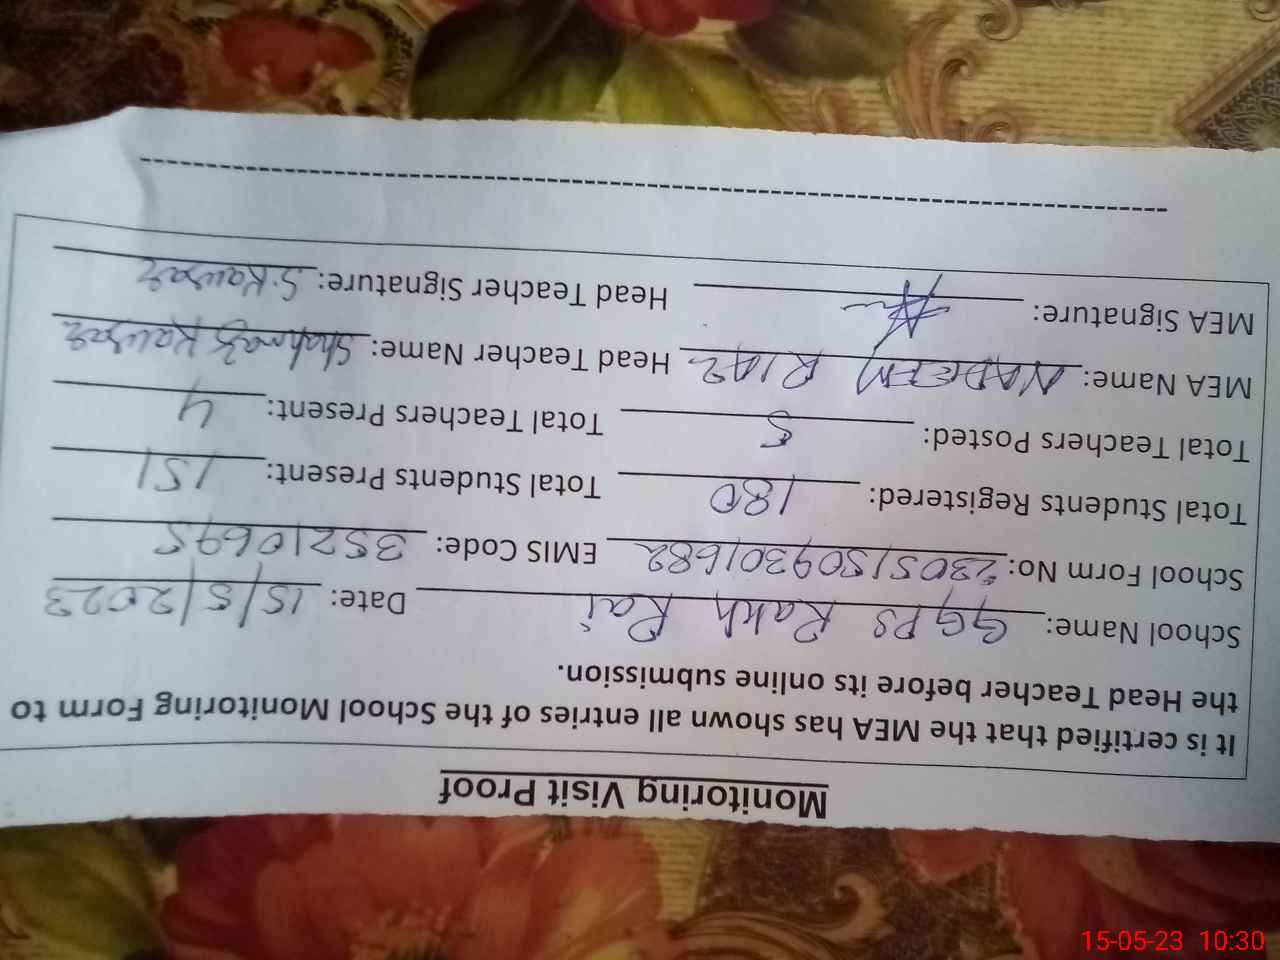 Monitoring Visit Proof
It is certified that the MEA has shown all entries of the School Monitoring Form to
the Head Teacher before its online submission.
School Name: GGPS Rakh Rai Date: 15/5/2023
School Form No: 23051509301682 EMIS Code: 35210695
Total Students Registered: 180 Total Students Present: 151
Total Teachers Posted: 5 Total Teachers Present: 4
MEA Name: NADEEM RIAZ Head Teacher Name: Shahnaz Kausar
MEA Signature: Head Teacher Signature: S.Kausar
15-05-23 10:30